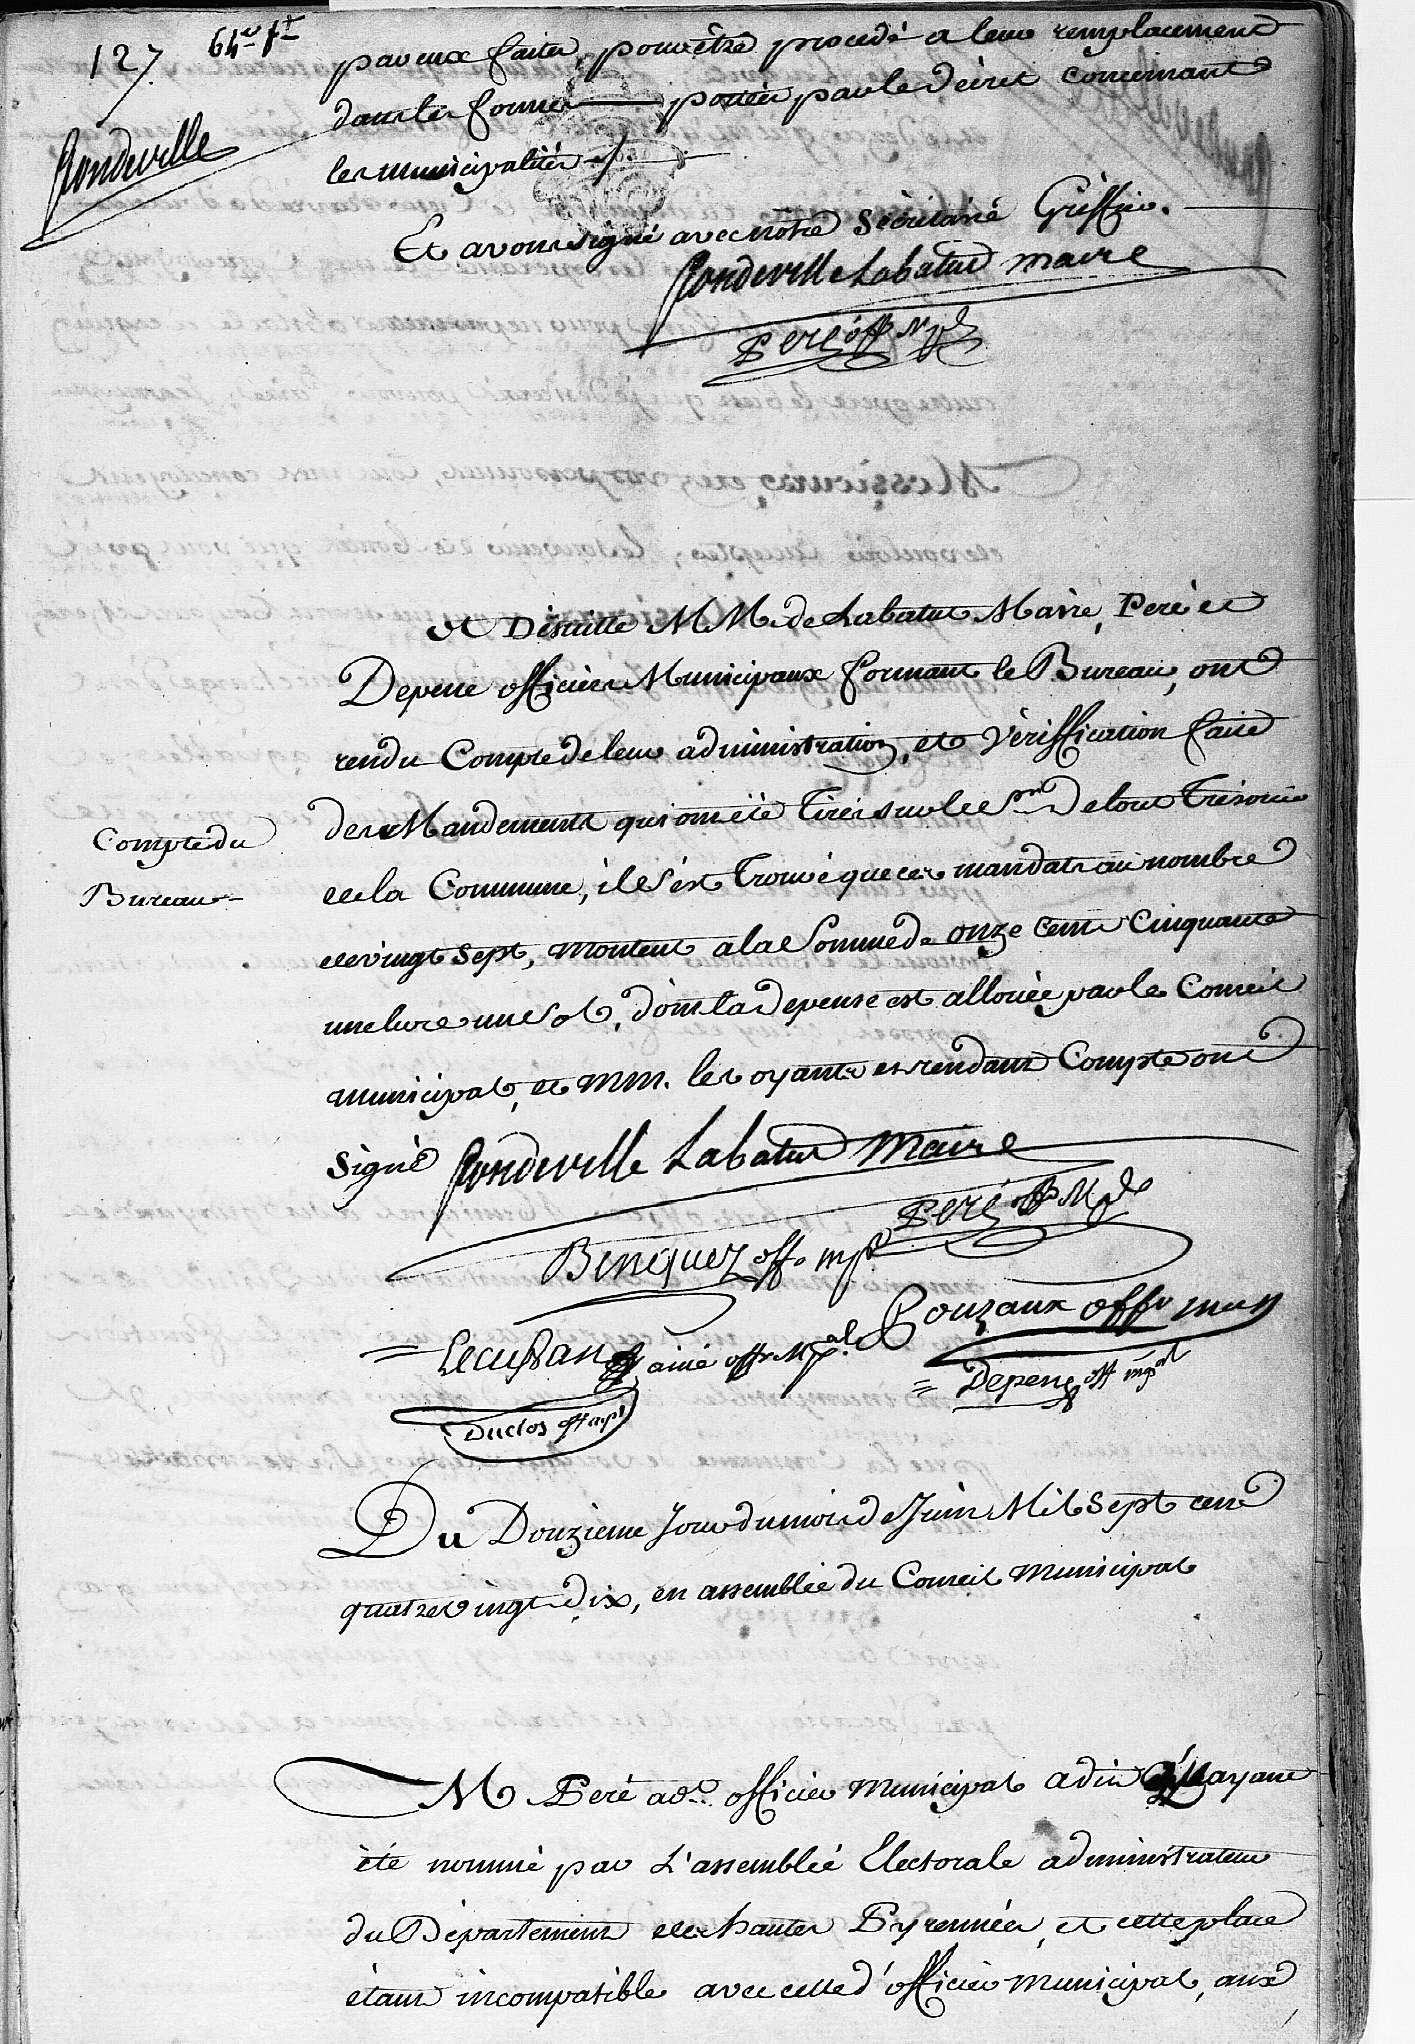 127.
64e ft
Gonderville
par eux faites, pour être procedé a leur remplacement
dans les formes portées par le décret concernant
les municipalités
Et avons signé avec nôtre Sécrétaire Gréffier.
Gonderville Labatut maire
Peré off Mpal
MM. de Labatut Maire, Peré et
Depene officiers Municipaux formant le Bureau, ont
rendu Compte de leur administration, et vériffication faite
des Mandements qui ont été tirés sur le Sr Delout Trésorier
Compte du
Bureau
de la Commune, il s'ést trouvé que ces mandats au nombre
de vingt Sept, montent a la Somme de onze cent Cinquante
une livre un Sol, dont la depense est allouée par le Conseil
municipal, et mm. les oyants et rendant Compte ont
Signé Gonderville Labatut Maire
Peré off Mpal
Benquez off. mpal
Couzaux offr mun
ainé offr Mpal
Depene off mpal
Duclos off mpl
Du Douzieme Jour du mois de Juin Mil Sept cent
quatre vingt Dix, en assemblée du Conseil Municipal
M Peré ad.. officier Municipal a dit q'ayant
été nommé par L'assemblée Electorale administrateur
du Département des hautes Pyrennées, et cette place
étant incompatible avec celle d'officier Municipal, aux